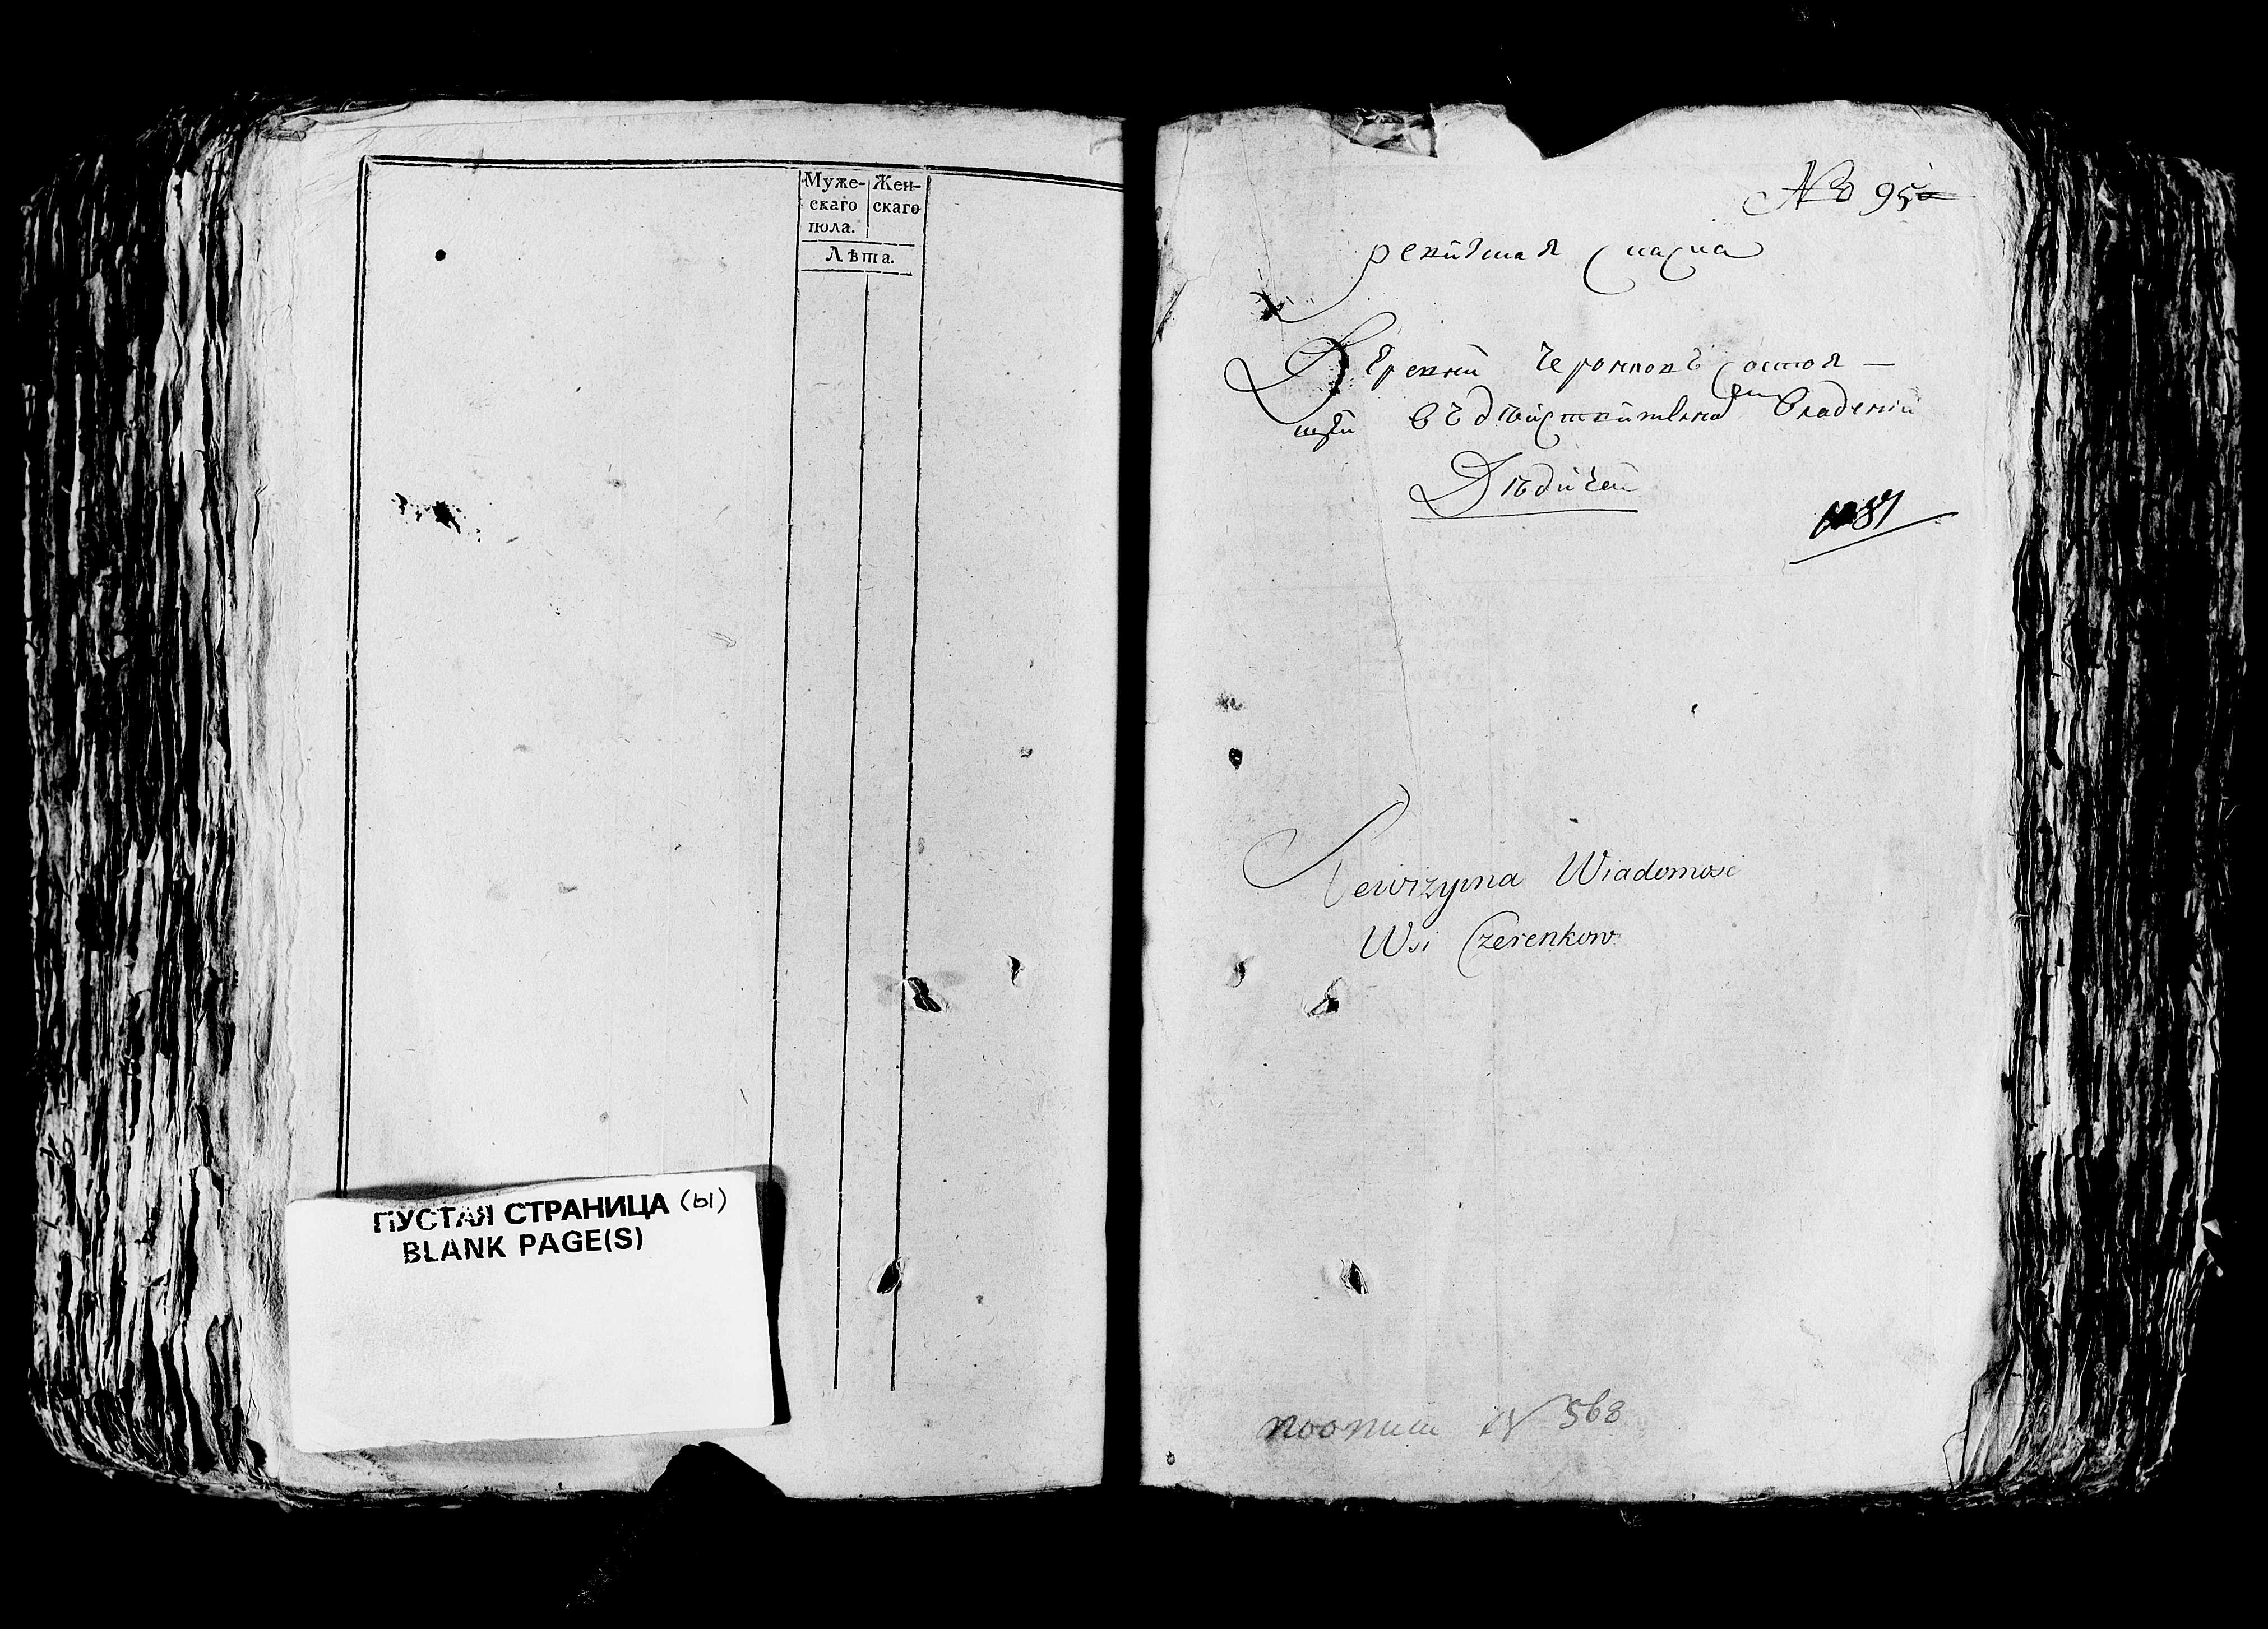 Муже-
скаго
пола.
Жен-
скаго
Лѣта.
ПУСТАЯ СТРАНИЦА (ы)
BLANK PAGE(S)
№ 95
ревизная сказка
Деревни Черонковъ состоя-
щей въ дѣйствительномъ владении
Дѣдичей
Rewizyina Wiadomosc
Wsi Czerenkow
по описи № 568